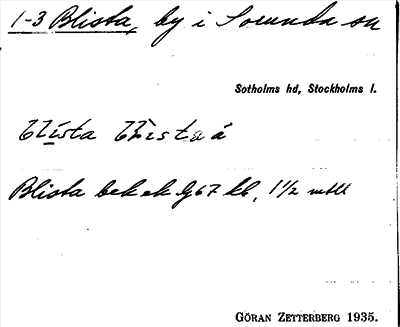 1-3 Blista, by i Sorunda sn
Sotholms hd, Stockholms l.
Blista
Blista bek ek Ig 67 kb, 1 1/2 mtl
GÖRAN ZETTERBERG 1935.